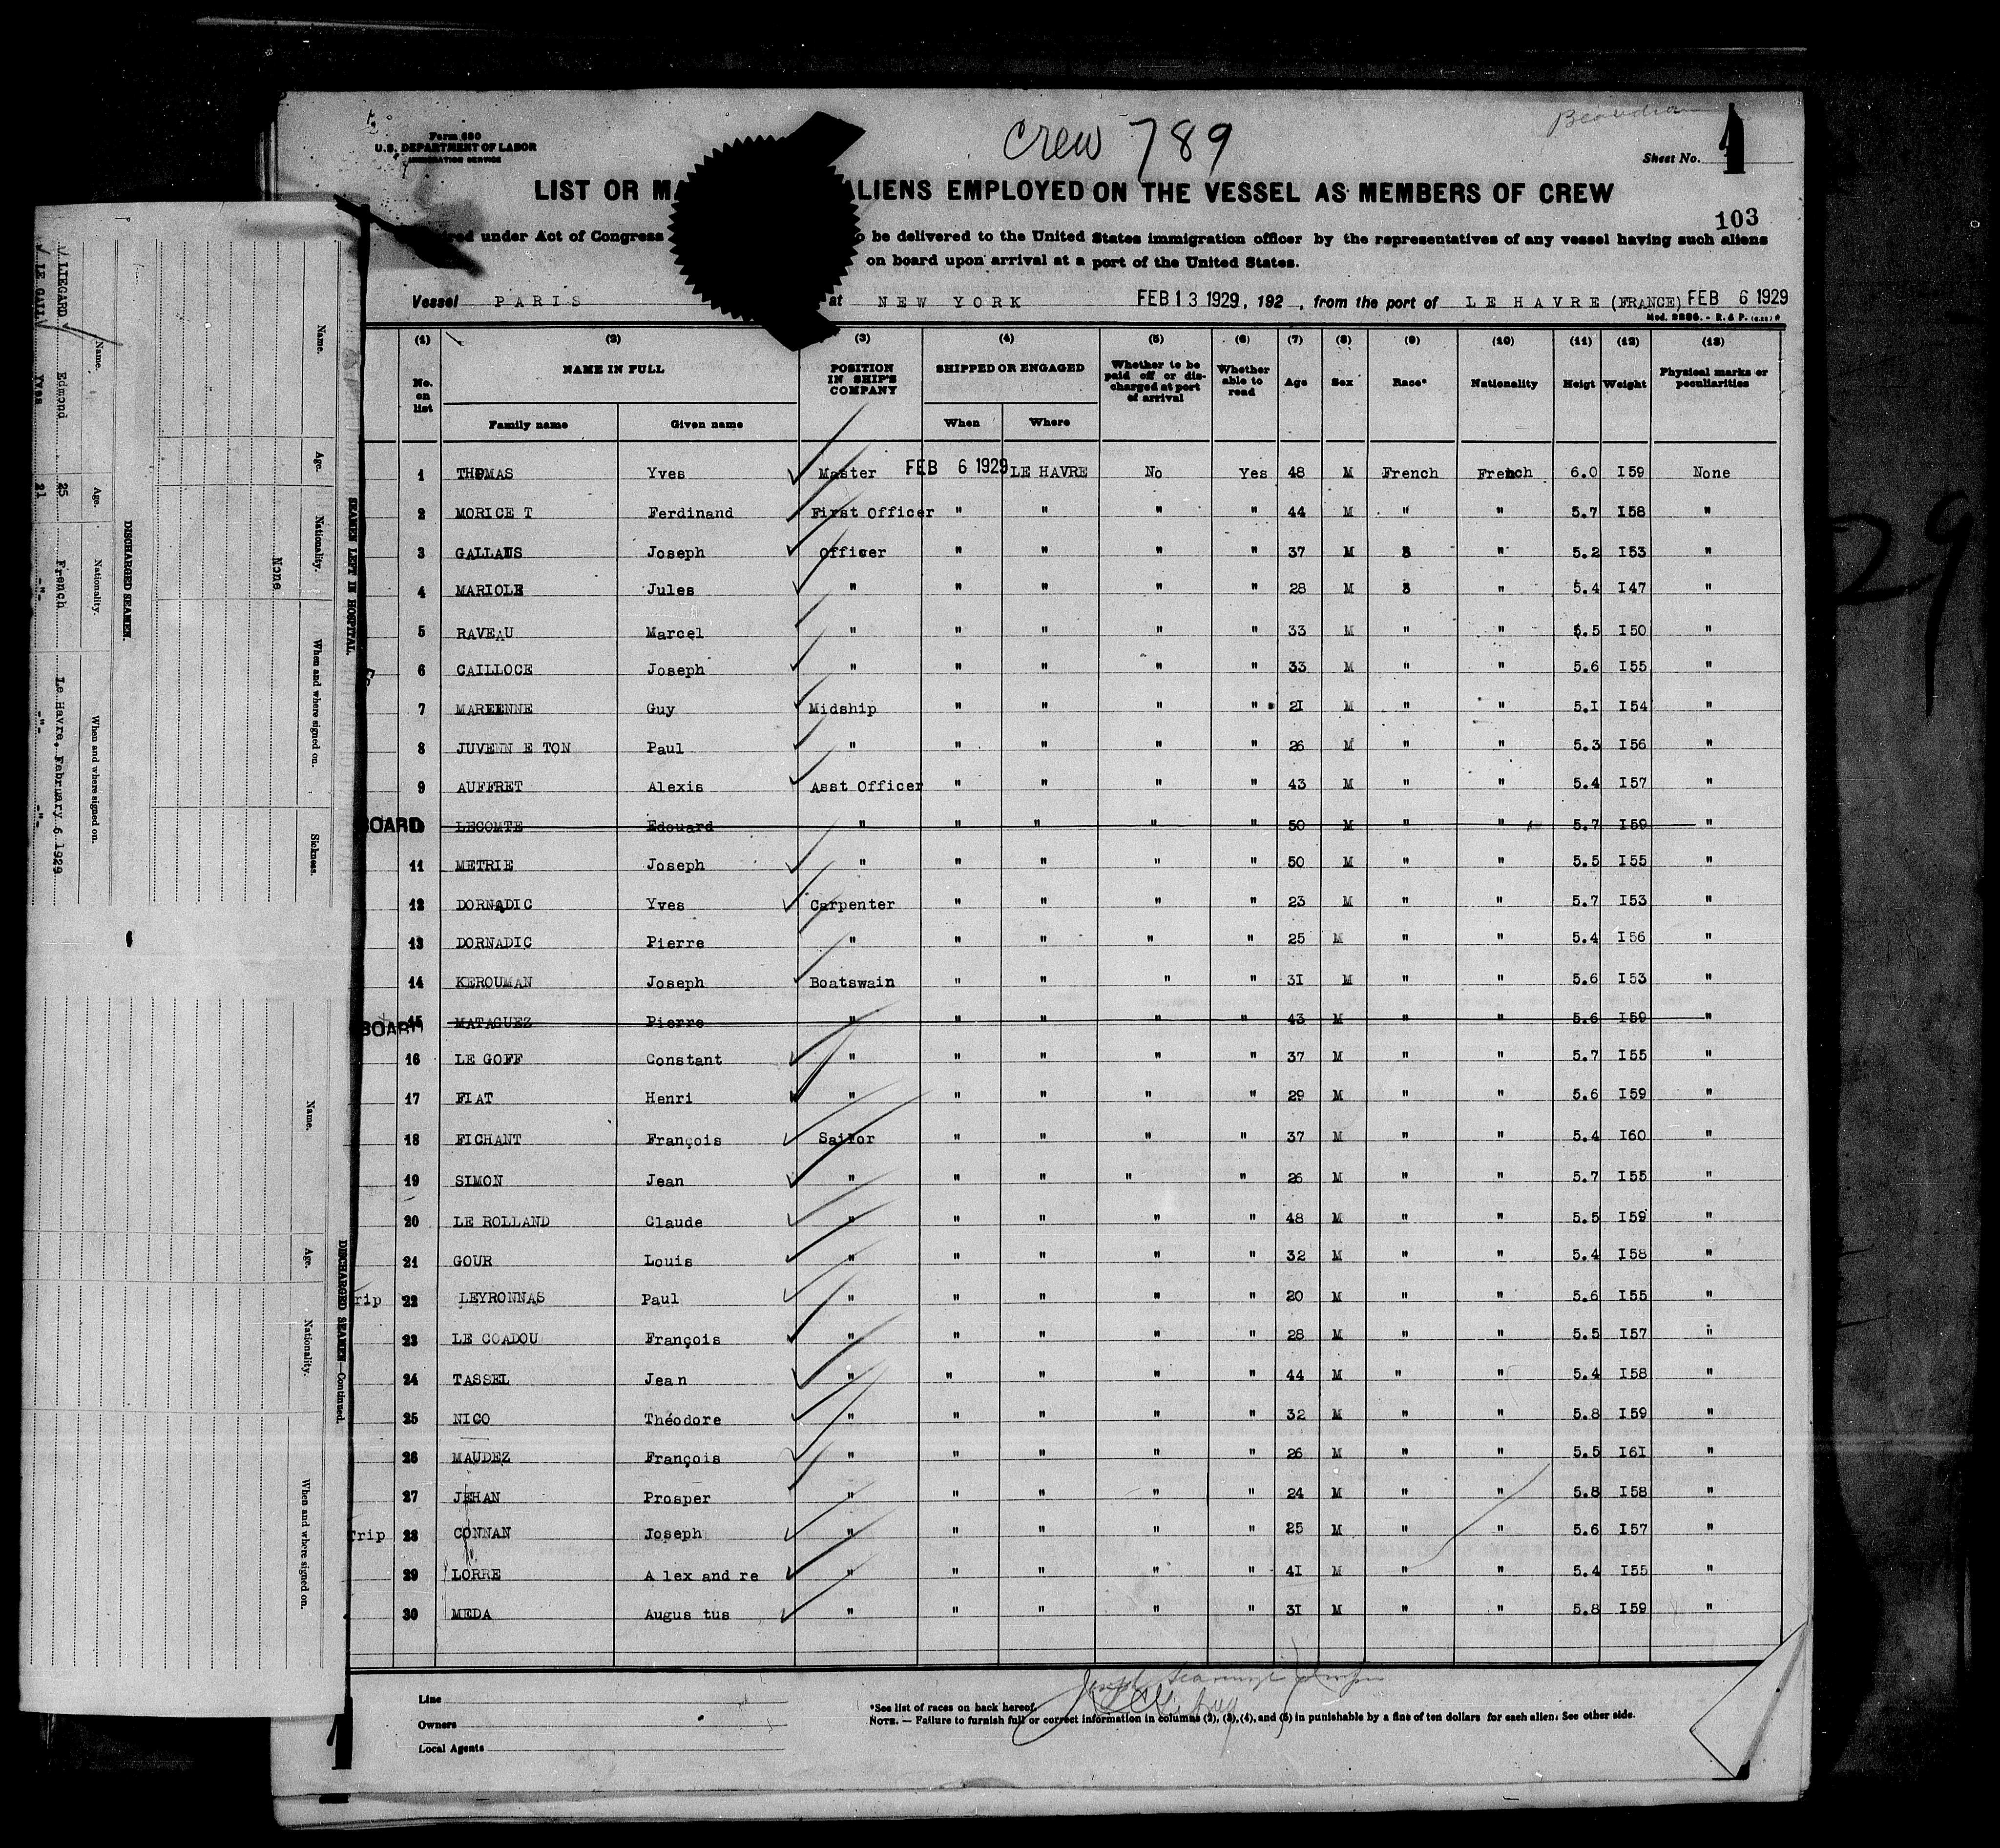 Form 680
U.S. DEPARTMENT OF LABOR
IMMIGRATION SERVICE
Crew 789
Sheet No. 1
LIST OR MA ALIENS EMPLOYED ON THE VESSEL AS MEMBERS OF CREW
103
red under Act of Congress o be delivered to the United States immigration officer by the representatives of any vessel having such aliens
on board upon arrival at a port of the United States.
Vessel PARIS at NEW YORK FEB 13 1929, 192 , from the port of LE HAVRE (FRANCE) FEB 6 1929
(1) (2) (3) (4) (5) (6) (7) (8) (9) (10) (11) (12) (13)
No. on list NAME IN FULL POSITION IN SHIP'S COMPANY SHIPPED OR ENGAGED Whether to be paid off or discharged at port of arrival Whether able to read Age Sex Race* Nationality Heigt Weight Physical marks or peculiarities
Family name Given name When Where
1 THOMAS Yves Master FEB 6 1929 LE HAVRE No Yes 48 M French French 6.0 I59 None
2 MORICE T Ferdinand First Officer " " " " 44 M " " 5.7 I58 "
3 GALLAUS Joseph Officer " " " " 37 M " 5.2 I53 "
4 MARIOLE Jules " " " " " 28 M " 5.4 I47 "
5 RAVEAU Marcel " " " " " 33 M " " 5.5 I50 "
6 CAILLOCE Joseph " " " " " 33 M " " 5.6 I55 "
7 Guy Midship " " " " 21 M " " 5.I I54 "
8 JUVENN E TON Paul " " " " " 26 M " " 5.3 I56 "
9 AUFFRET Alexis Asst Officer " " " " 43 M " " 5.4 I57 "
BOARD LECOMTE Edouard " " " " " 50 M " " 5.7 I59 "
11 METRIE Joseph " " " " " 50 M " " 5.5 I55 "
12 DORNADIC Yves Carpenter " " " " 23 M " " 5.7 I53 "
13 DORNADIC Pierre " " " " " 25 M " " 5.4 I56 "
14 KEROUMAN Joseph Boatswain " " " " 3I M " " 5.6 I53 "
BOARD 15 MATAGUEZ Pierre " " " " " 43 M " " 5.6 I59 "
16 LE GOFF Constant " " " " " 37 M " " 5.7 I55 "
17 FIAT Henri " " " " " 29 M " " 5.6 I59 "
18 FICHANT François Sailor " " " " 37 M " " 5.4 I60 "
19 SIMON Jean " " " " " 26 M " " 5.7 I55 "
20 LE ROLLAND Claude " " " " " 48 M " " 5.5 I59 "
21 GOUR Louis " " " " " 32 M " " 5.4 I58 "
rip 22 LEYRONNAS Paul " " " " " 20 M " " 5.6 I55 "
23 LE COADOU François " " " " " 28 M " " 5.5 I57 "
24 TASSEL Jean " " " " " 44 M " " 5.4 I58 "
25 NICO Théodore " " " " " 32 M " " 5.8 I59 "
26 MAUDEZ François " " " " " 26 M " " 5.5 I6I "
27 JEHAN Prosper " " " " " 24 M " " 5.8 I58 "
Trip 28 CONNAN Joseph " " " " " 25 M " " 5.6 I57 "
29 LORRE A lex and re " " " " " 4I M " " 5.4 I55 "
30 MEDA Augus tus " " " " " 3I M " " 5.8 I59 "
Line
Owners
Local Agents
*See list of races on back hereof.
NOTE. — Failure to furnish full or correct information in columns (2), (3), (4), and (5) in punishable by a fine of ten dollars for each alien. See other side.
SEAMEN LEFT IN HOSPITAL.
Name. Age. Nationality. When and where signed on. Sickness.
None
DISCHARGED SEAMEN.
Name. Age. Nationality. When and where signed on.
LIEGARD Edmond 25 French Le Havre. February 6 1929
LE GALL Yves 21 -"- -"- -"-
DISCHARGED SEAMEN—Continued.
Name. Age. Nationality. When and where signed on.
29